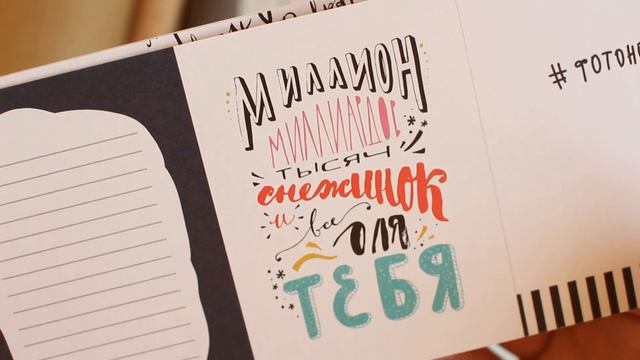 МИЛЛИОН
МИЛЛИАРДОВ
ТЫСЯЧ
снежинок
и все для
ТЕБЯ